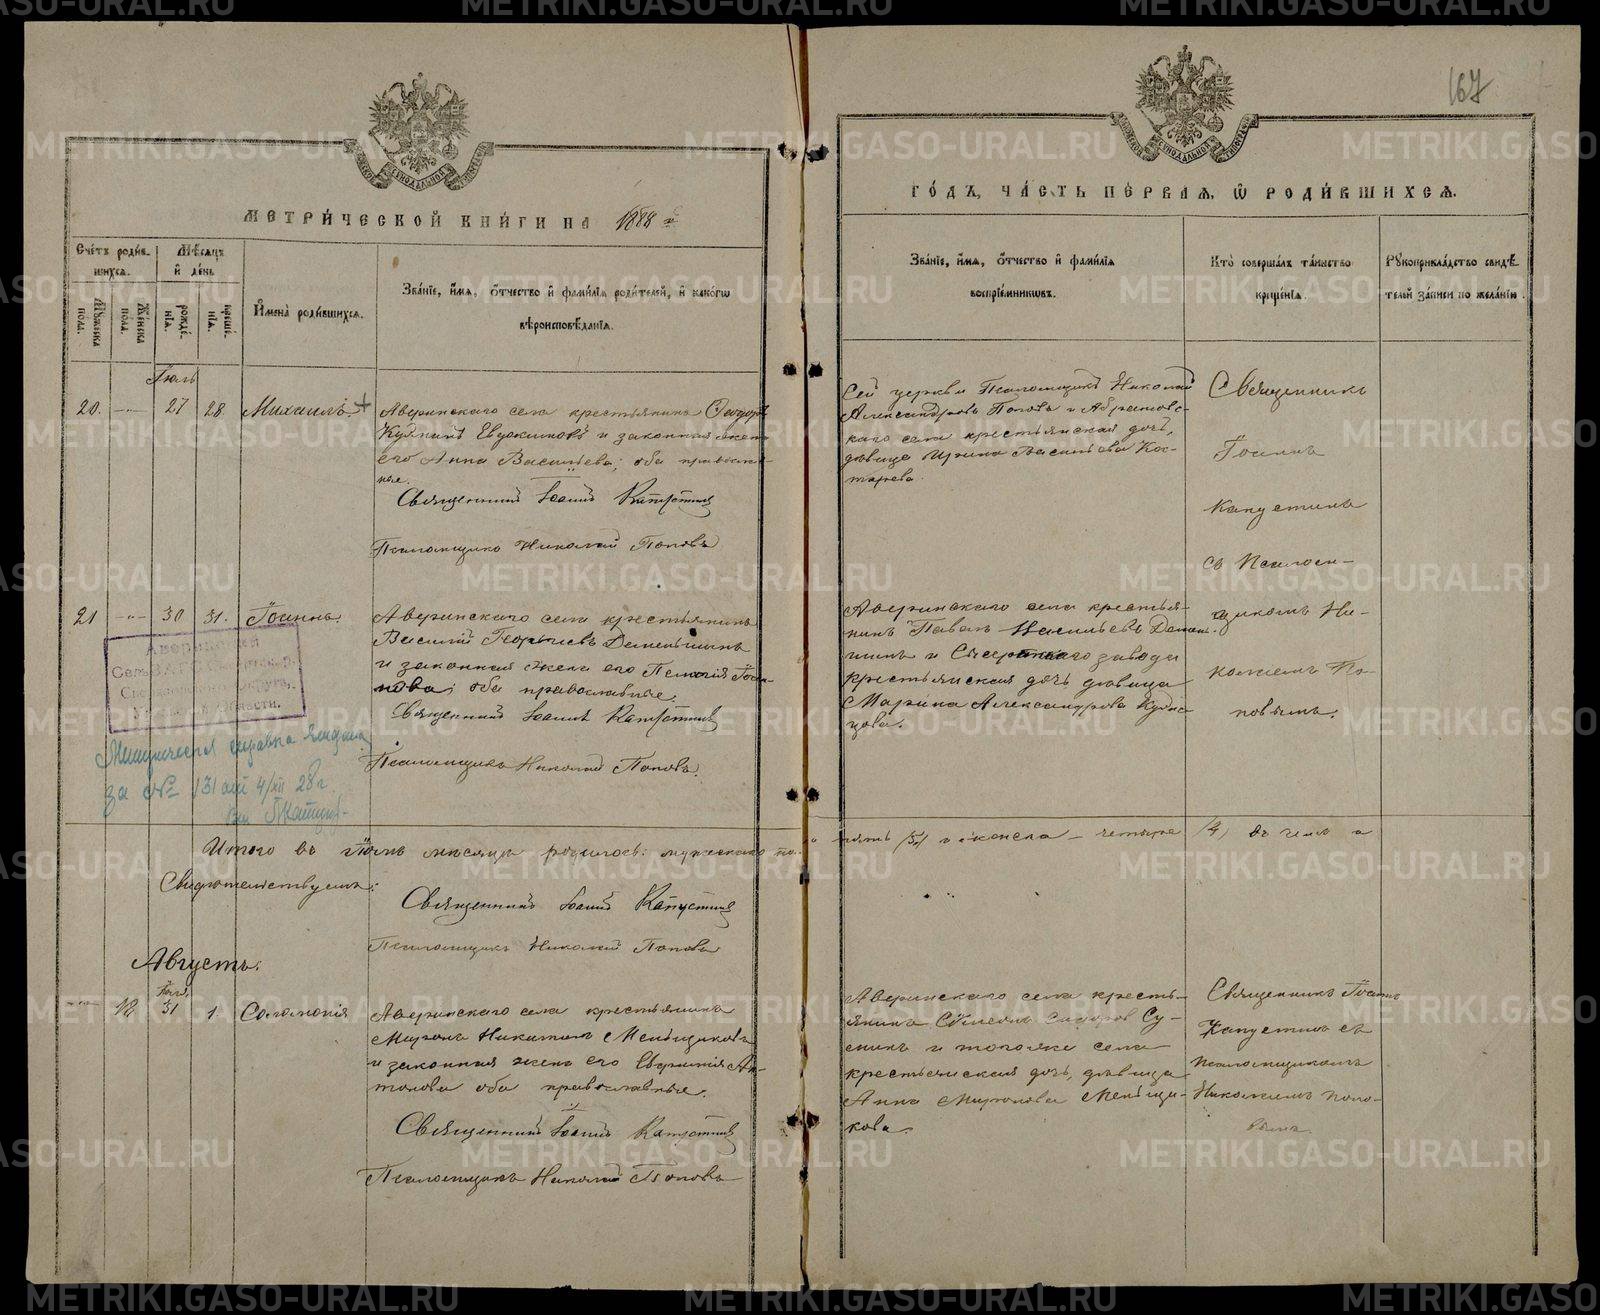 167
МЕТРИ́ЧЕСКОЙ КНИ́ГИ НА 1888
ГО́ДЪ, ЧА́СТЬ ПЕ́РВАЯ, Ѡ РОДИ́ВШИХСЯ.
Сче́тъ роди́в-
шихся.
Мѣ́сяцъ
и҆ де́нь
Му́жеска по́ла.
Же́нска по́ла.
рожде́-
нїя.
креще́-
нїя.
И҆мена̀ роди́вшихся.
Зва́нїе, и҆́мя, ѻ҆́тчество и҆ фами́лїя роди́телей, и҆ како́гѡ
вѣроисповѣ́данїя.
Зва́нїе, и҆́мя, ѻ҆́тчество и҆ фами́лїя
воспрїе́мникѡвъ.
Кто̀ соверша́лъ та́инство
креще́нїя.
Рꙋкоприкла́дство свидѣ́-
телей за́писи по жела́нїю.
Іюль
20. 27 28 Михаилъ
Аверинскаго села крестьянинъ Ѳеодоръ
Евдокимовъ и законная жена
его Анна Васильева; оба православ-
ные.
Священникъ Іоаннъ Капустинъ
Псаломщикъ Николай Поповъ
Сей церкви Псаломщикъ Николай
Александровъ Поповъ и
села крестьянская дочь,
девица Ирина Васильева Кос-
тарева.
Священникъ
Іоаннъ
Капустинъ
съ Псалом-
щикомъ Ни-
колаемъ По-
повымъ.
21 30 31. Іоаннъ.
Аверинскаго села крестьянинъ
Василій Георгіевъ Деменьшинъ
и законная жена его Пелагія Іоан-
нова; оба православные.
Священникъ Іоаннъ Капустинъ
Псаломщикъ Николай Поповъ.
Аверинскаго села крестья-
нинъ Павелъ Васильевъ Демен-
шинъ и Сысертскаго завода
крестьянская дочь девица
Марина Александрова Кузне-
цова.
Аверинский
области.
Метрическая справка выдана
за № 131 4/XII 28 г.
Итого въ Іюлѣ мѣсяцѣ родилось: мужеска по-
ла пять (5) и женска – четыре (4) въ чемъ и
Свидетельствуемъ:
Священникъ Іоаннъ Капустинъ
Псаломщикъ Николай Поповъ
Августъ.
Іюль
12 31 1 Соломонія
Аверинскаго села крестьянинъ
Миронъ Никитинъ Меньщиковъ
и законная жена его Евфимія Ан-
тонова оба православные.
Священникъ Іоаннъ Капустинъ
Псаломщикъ Николай Поповъ
Аверинскаго села кресть-
янинъ Симеонъ Сидоровъ Су-
нинъ и тогоже села
крестьянская дочь, девица
Анна Миронова Меньщи-
кова.
Священникъ Іоаннъ
Капустинъ съ
псаломщикомъ
Николаемъ Попо-
вымъ.
METRIKI.GASO-URAL.RU